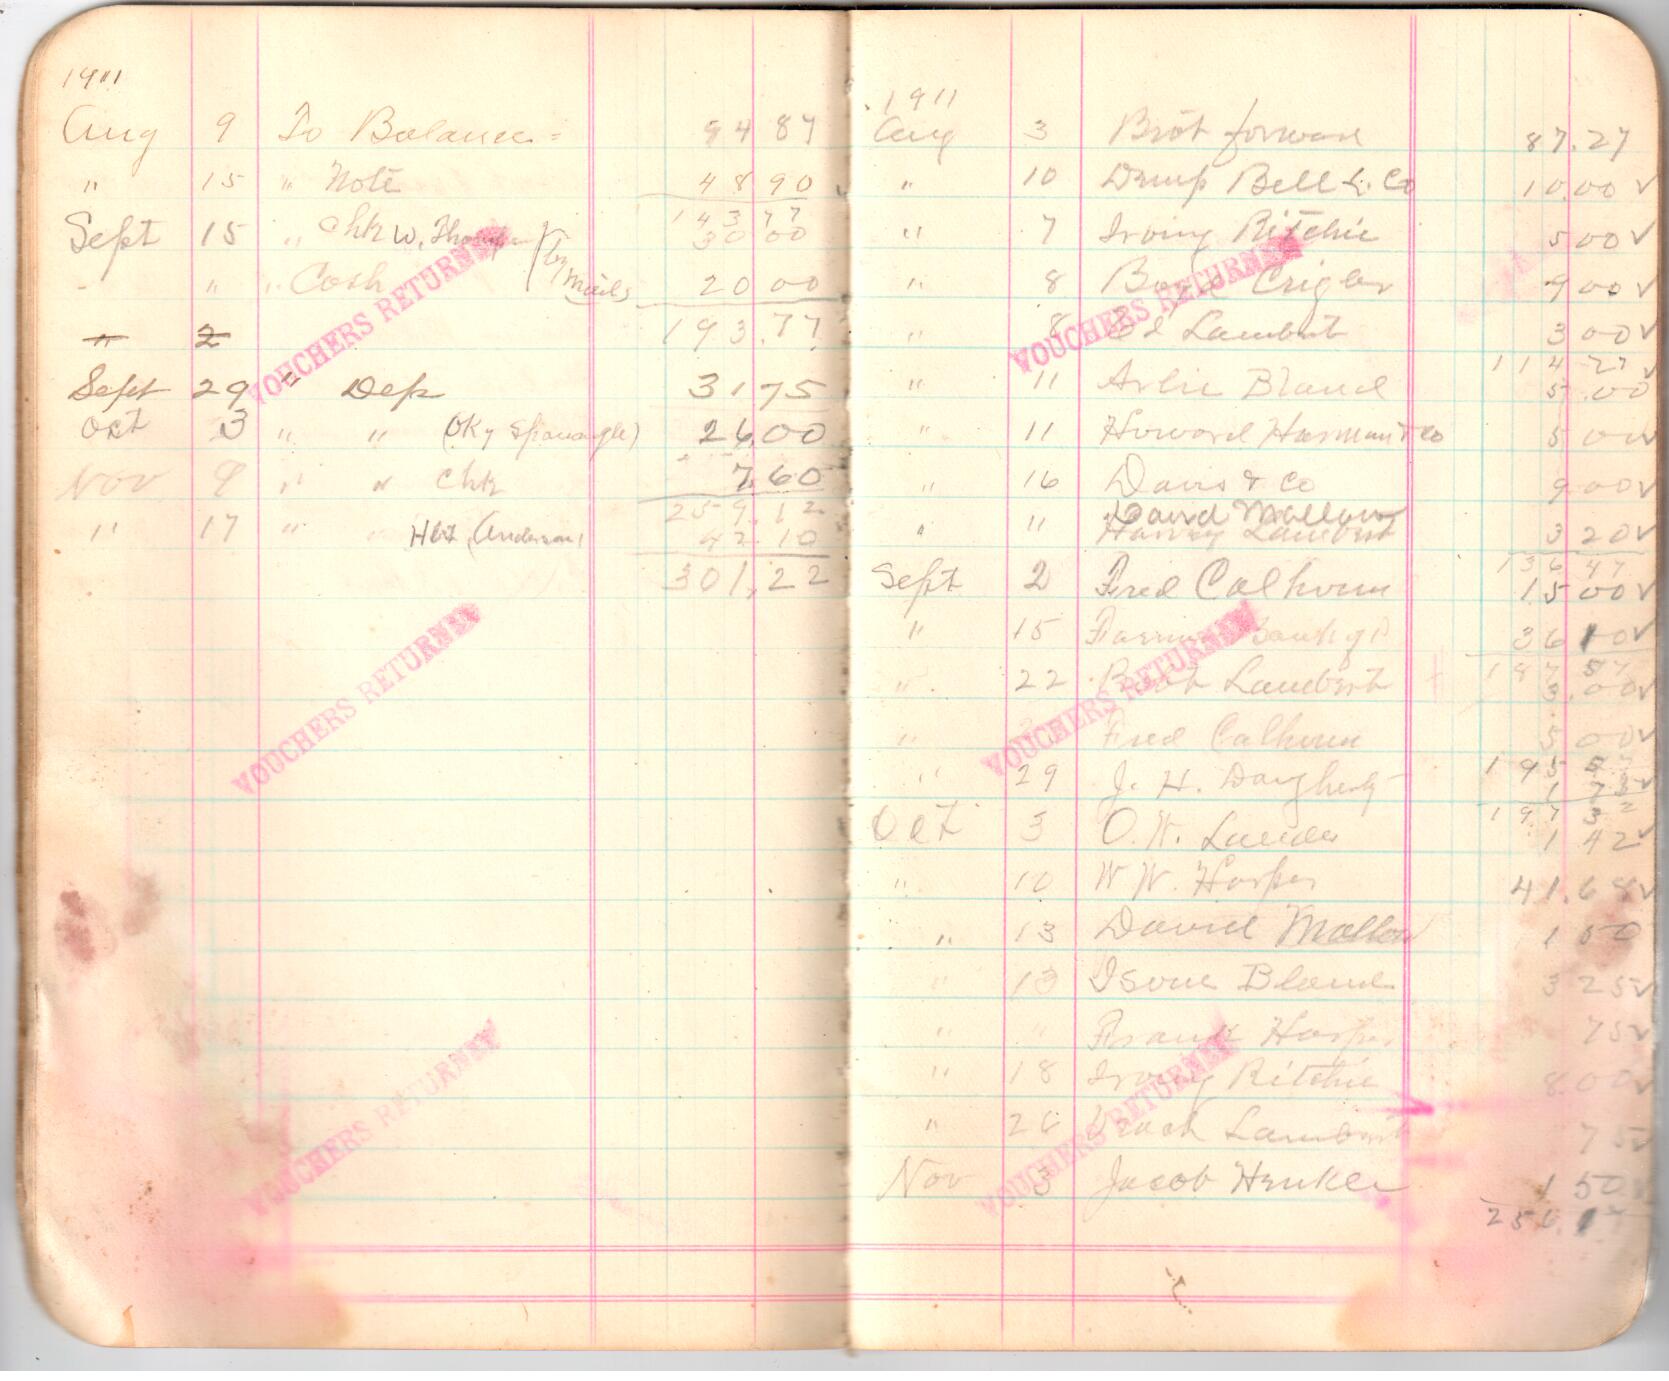 1911
Aug 9 To Balance = 94 87
" 15 " Note 48 90
143 77
Sept 15 " Chk W. 30 00
" " Cash (by mail) 20 00
193.77
" 2
Sept 29 " Dep 31 75
Oct 3 " " (OKy Spanaugle) 26.00
Nov 9 " " Chk 7.60
259.12
" 17 " Hbt Anderson 42.10
301.22
VOUCHERS RETURNED
VOUCHERS RETURNED
VOUCHERS RETURNED
1911
Aug 3 Brôt forward 87.27
" 10 Bell Co 10.00 ✓
" 7 Irving Ritchie 5 00 ✓
" 8 Crigler 9 00 ✓
" 8 Ed Lambert 3 00 ✓
114 27
" 11 Arlie Bland 5.00 ✓
" 11 Howard Harman & Co 5 00 ✓
" 16 Davis & Co 9 00 ✓
David Mallow
" 11 Harvey Lambert 3 20 ✓
136 47
Sept 2 Fred Calhoun 15 00 ✓
" 15 Bank of 36 10 ✓
187 57
" 22 Robt Lambert 3.00 ✓
" Fred Calhoun 5 00 ✓
195 57
" 29 J. H. Daugherty 1 75 ✓
197 32
Oct 3 O. W. 1 42 ✓
" 10 W W. Harper 41.68 ✓
" 13 David Mallow 1 50
" 13 Isom Bland 3 25 ✓
" " Frank Harper 75 ✓
" 18 Irving Ritchie 8.00 ✓
" 26 Lambert 75 ✓
Nov 3 Jacob Henkle 1 50
256.17
VOUCHERS RETURNED
VOUCHERS RETURNED
VOUCHERS RETURNED